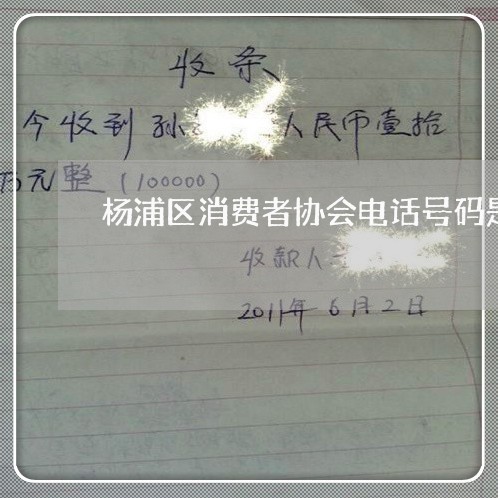 收条
今收到孙人民币壹拾
万元整（100000）
杨浦区消费者协会电话号码是
收款人
2011年6月2日